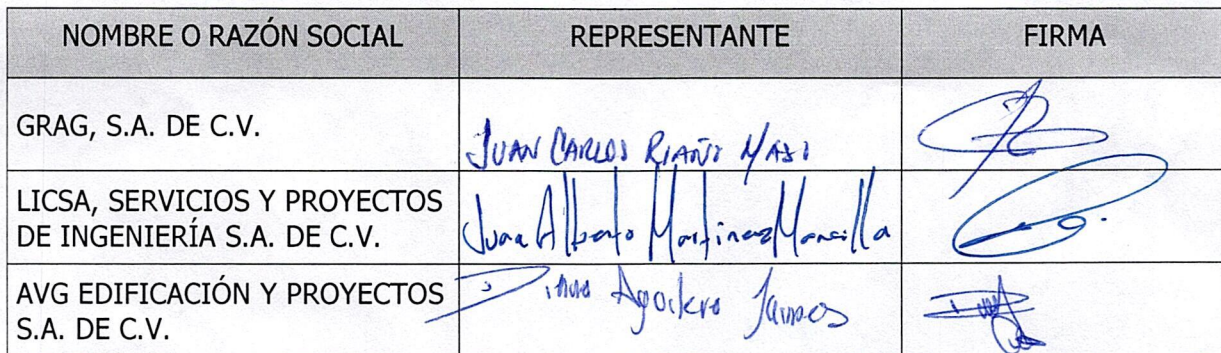 NOMBRE O RAZÓN SOCIAL REPRESENTANTE FIRMA
GRAG, S.A. DE C.V. JUAN CARLOS
LICSA, SERVICIOS Y PROYECTOS
DE INGENIERÍA S.A. DE C.V. Juan Alberto Martinez Mansilla
AVG EDIFICACIÓN Y PROYECTOS
S.A. DE C.V.